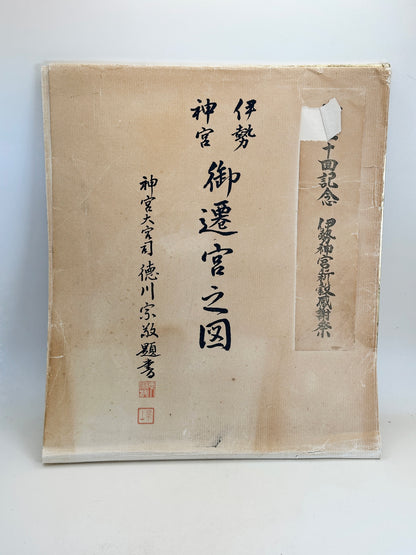 十回記念 伊勢神宮新穀感謝祭
伊勢
神宮
御遷宮之図
神宮大宮司 徳川宗敬題書